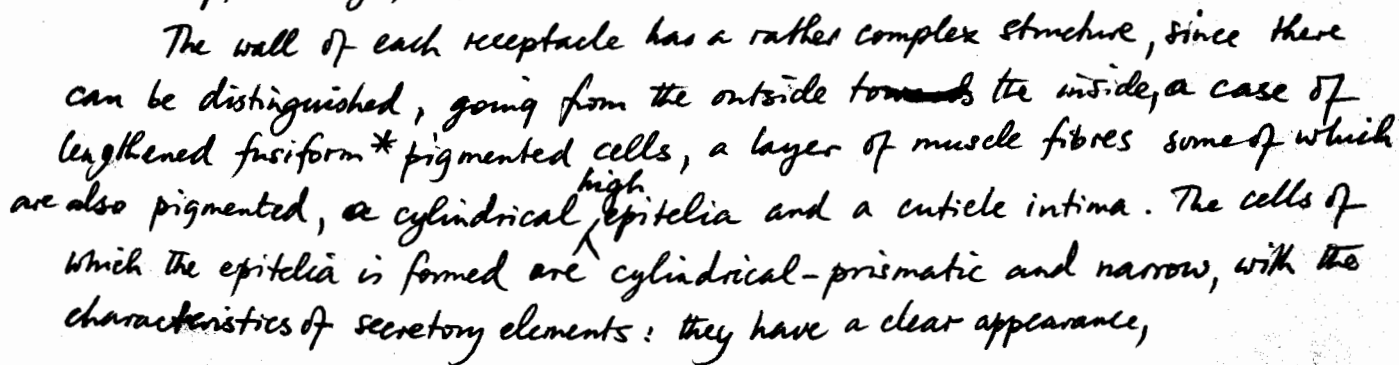 The wall of each receptacle has a rather complex structure, since there
can be distinguished, going from the outside towards the inside, a case of
lengthened fusiform* pigmented cells, a layer of muscle fibres some of which
are also pigmented, a cylindrical high epitelia and a cuticle intima. The cells of
which the epitelia is formed are cylindrical-prismatic and narrow, with the
characteristics of secretory elements: they have a clear appearance,